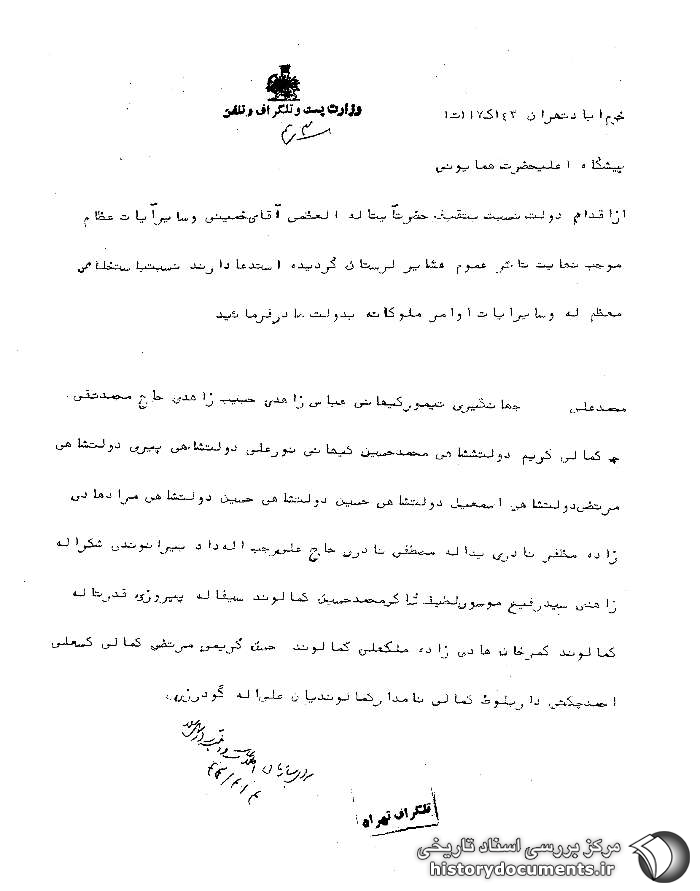 وزارت پست و تلگراف و تلفن
خرم اباد تهران
پیشگاه اعلیحضرت همایونی
از اقدام دولت نسبت بتوقیف حضرت آیت اله العظمی آقای خمینی و سایر آیات عظام
موجب نهایت تاثر عموم عشایر لرستان گردیده استدعا دارند نسبت باستخلاص
معظم له و سایر آیات اوامر ملوکانه بدولت صادر فرمائید
محمدعلی جهانگیری تیمور کیهانی عباس زاهدی حبیب زاهدی حاج محمدتقی
کمالی کریم دولتشاهی محمدحسین کیهانی نورعلی دولتشاهی پیری دولتشاهی
مرتضی دولتشاهی اسمعیل دولتشاهی حسین دولتشاهی حسین دولتشاهی مراد هادی
زاده مظفر نادری یداله مصطفی نادری حاج علی رجب اله داد بیرانوندی شکراله
زاهدی سیدرفیع موسوی لطیف ذاکر محمدحسین کمالوند سیفاله پیروزی قدرت اله
کمالوند کمرخان هادی زاده ملکعلی کمالوند حسن کریمی مرتضی کمالی کسعلی
احمد چکشی داربلوط کمالی نامدار کمالوندیان علی اله گودرزی
تلگراف تهران
مرکز بررسی اسناد تاریخی
historydocuments.ir